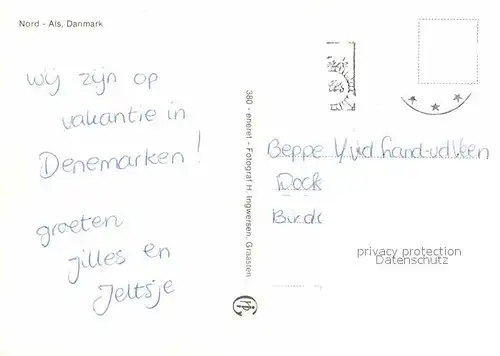 Nord - Als, Danmark
wij zijn op
vakantie in
Denemarken!
groeten
jilles en
Jeltsje
380 - eneret - Fotograf H. Ingwersen, Graasten
Beppe
Dock
privacy protection
Datenschutz